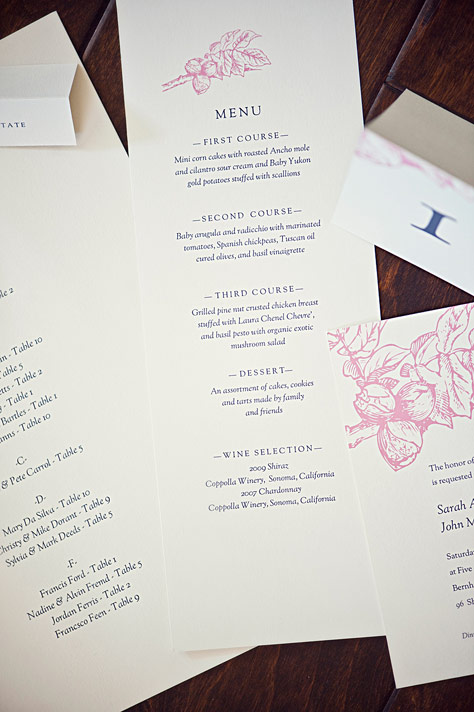 TATE
ble 2
n - Table 10
nn - Table 9
etts - Table 2
- Table 1
Bartles - Table 1
anns - Table 10
-C-
& Pete Carrol - Table 5
-D-
Mary Da Silva - Table 10
Christy & Mike Dorant - Table 9
Sylvia & Mark Deeds - Table 5
-F-
Francis Ford - Table 1
Nadine & Alvin Fremd - Table 5
Jordan Ferris - Table 2
Francesco Feen - Table 9
MENU
—FIRST COURSE—
Mini corn cakes with roasted Ancho mole
and cilantro sour cream and Baby Yukon
gold potatoes stuffed with scallions
—SECOND COURSE—
Baby arugula and radicchio with marinated
tomatoes, Spanish chickpeas, Tuscan oil
cured olives, and basil vinaigrette
—THIRD COURSE—
Grilled pine nut crusted chicken breast
stuffed with Laura Chenel Chevre',
and basil pesto with organic exotic
mushroom salad
—DESSERT—
An assortment of cakes, cookies
and tarts made by family
and friends
—WINE SELECTION—
2009 Shiraz
Coppolla Winery, Sonoma, California
2007 Chardonnay
Coppolla Winery, Sonoma, California
1
The honor of
is requested
Sarah A
John M
Saturday
at Five
Bernh
96 Sh
Din